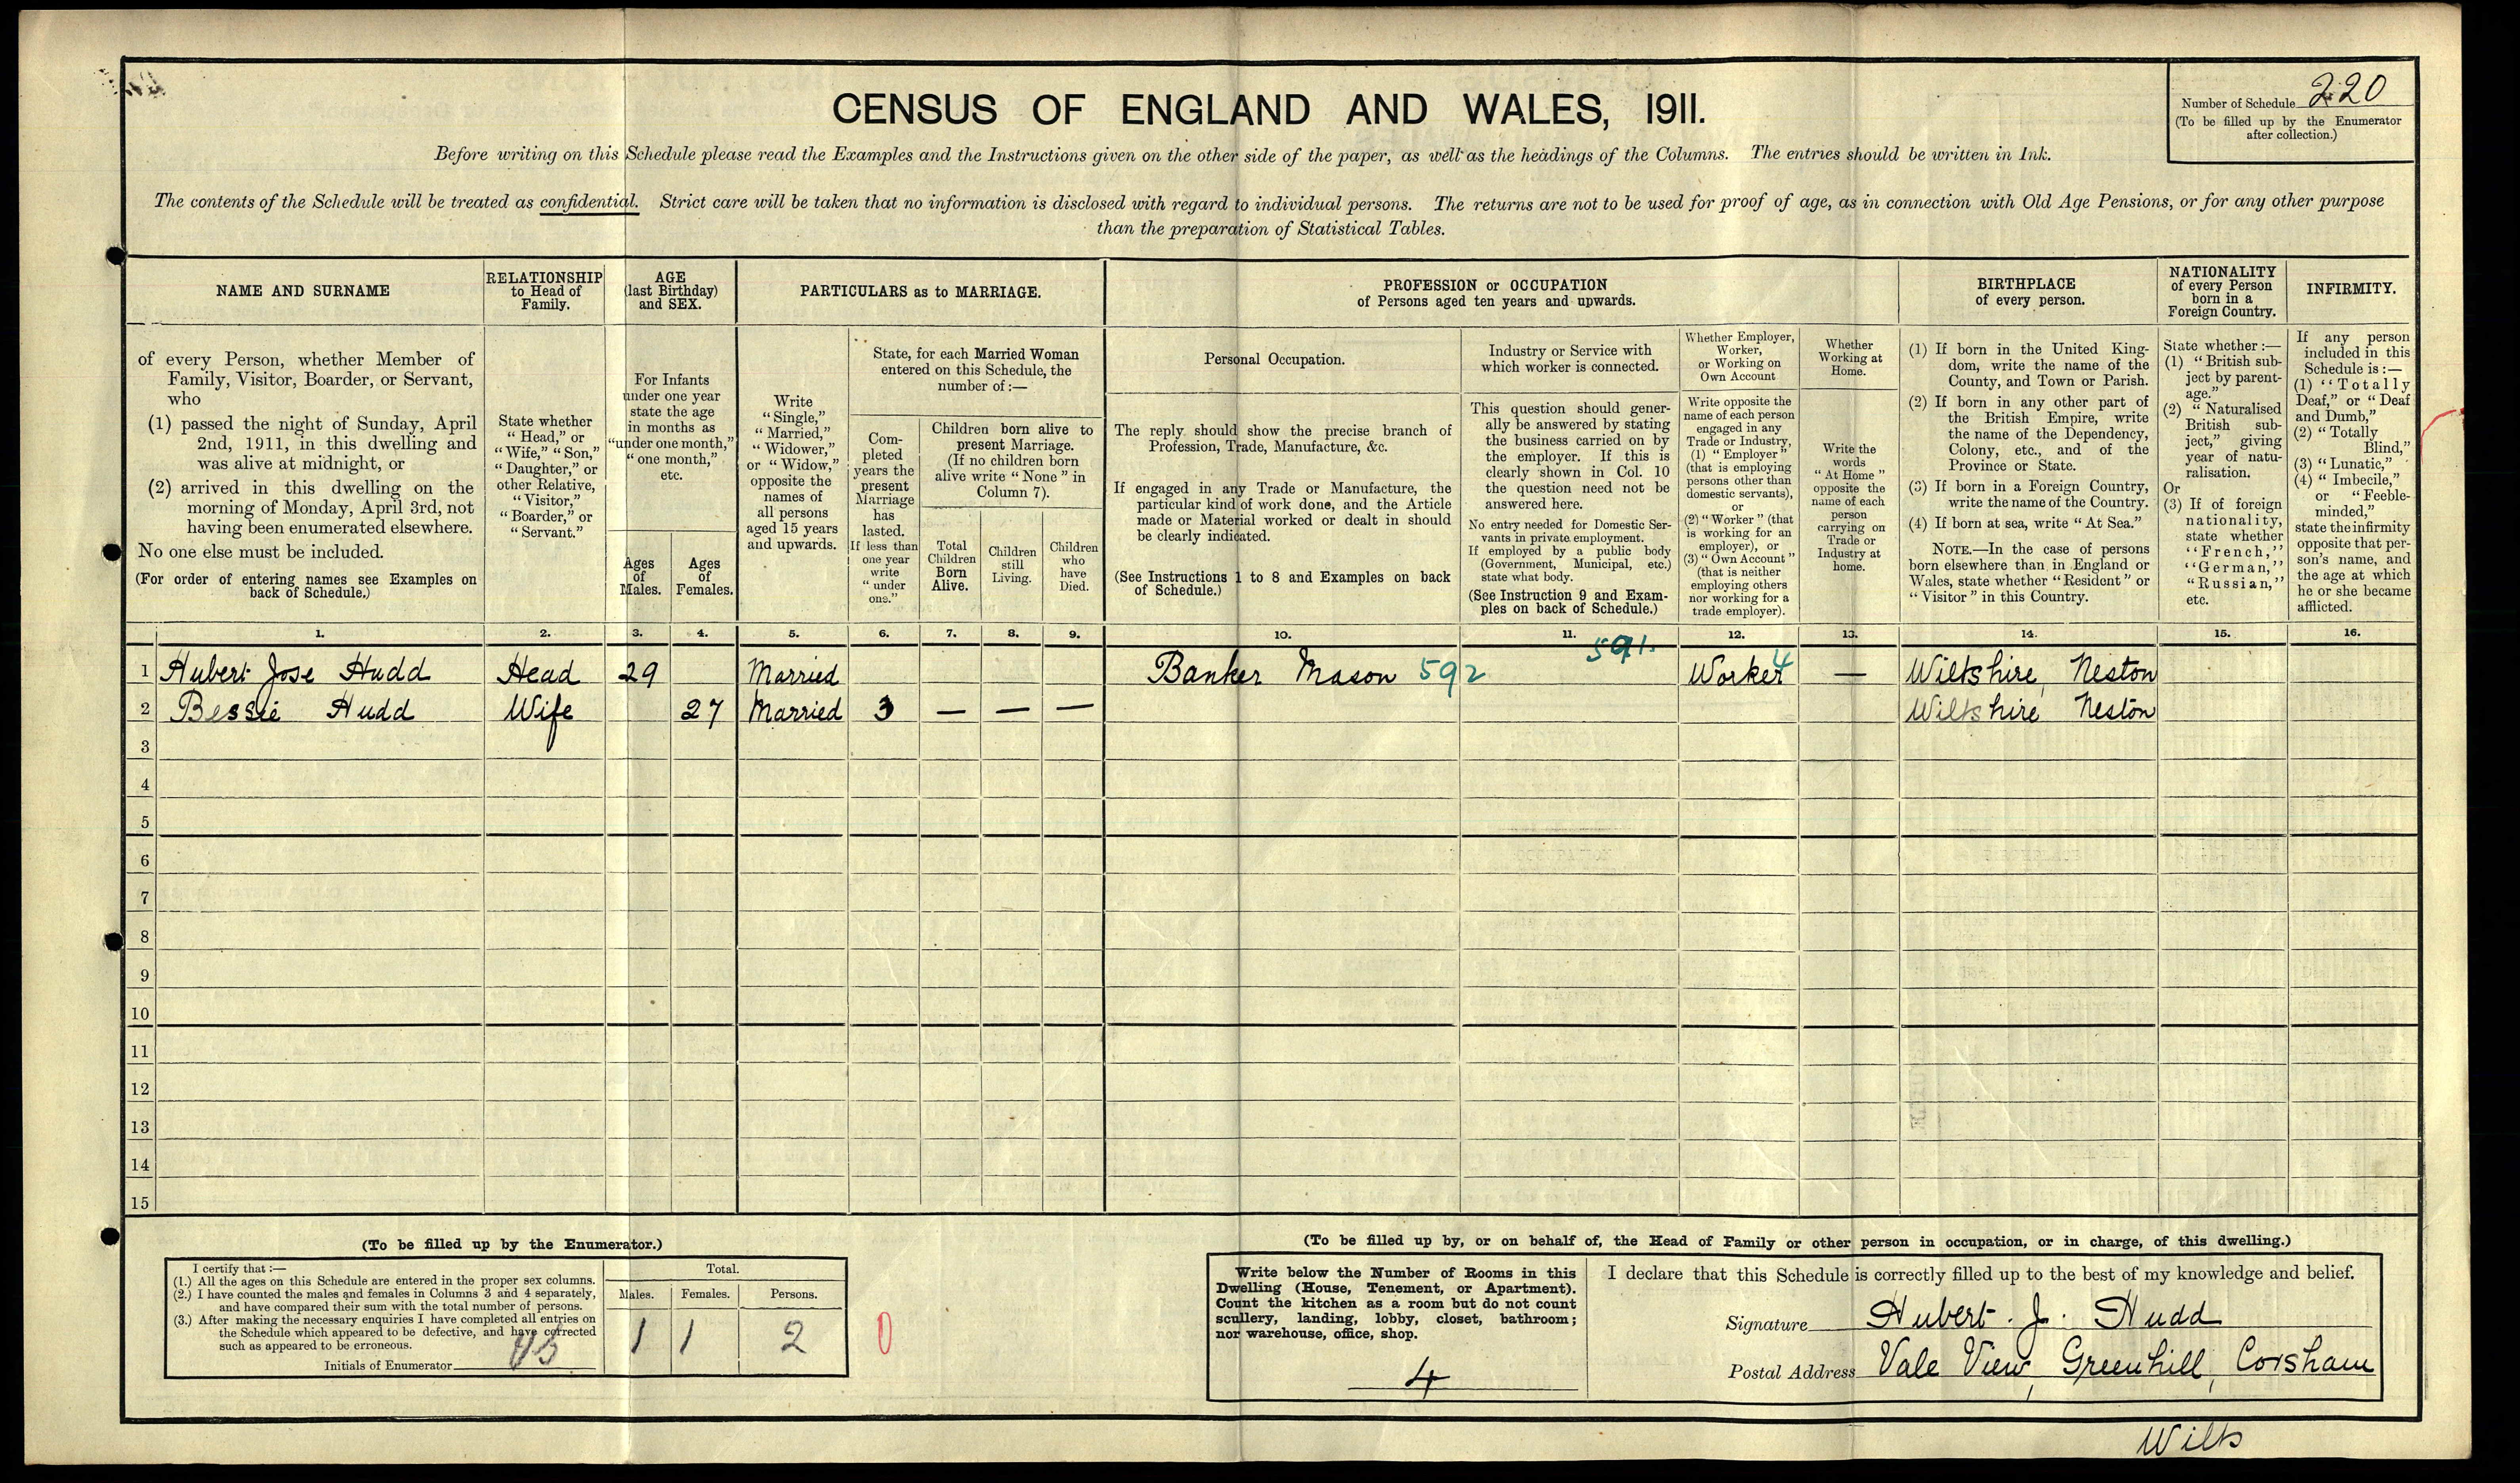 CENSUS OF ENGLAND AND WALES, 1911.
Number of Schedule 220
(To be filled up by the Enumerator
after collection.)
Before writing on this Schedule please read the Examples and the Instructions given on the other side of the paper, as well as the headings of the Columns. The entries should be written in Ink.
The contents of the Schedule will be treated as confidential. Strict care will be taken that no information is disclosed with regard to individual persons. The returns are not to be used for proof of age, as in connection with Old Age Pensions, or for any other purpose
than the preparation of Statistical Tables.
NAME AND SURNAME
RELATIONSHIP
to Head of
Family.
AGE
(last Birthday)
and SEX.
PARTICULARS as to MARRIAGE.
PROFESSION or OCCUPATION
of Persons aged ten years and upwards.
BIRTHPLACE
of every person.
NATIONALITY
of every Person
born in a
Foreign Country.
INFIRMITY.
of every Person, whether Member of
Family, Visitor, Boarder, or Servant,
who
(1) passed the night of Sunday, April
2nd, 1911, in this dwelling and
was alive at midnight, or
(2) arrived in this dwelling on the
morning of Monday, April 3rd, not
having been enumerated elsewhere.
No one else must be included.
(For order of entering names see Examples on
back of Schedule.)
State whether
"Head," or
"Wife," "Son,"
"Daughter," or
other Relative,
"Visitor,"
"Boarder," or
"Servant."
For Infants
under one year
state the age
in months as
"under one month,"
"one month,"
etc.
Ages
of
Males.
Ages
of
Females.
Write
"Single,"
"Married,"
"Widower,"
or "Widow,"
opposite the
names of
all persons
aged 15 years
and upwards.
State, for each Married Woman
entered on this Schedule, the
number of:—
Com-
pleted
years the
present
Marriage
has
lasted.
If less than
one year
write
"under
one."
Children born alive to
present Marriage.
(If no children born
alive write "None" in
Column 7).
Total
Children
Born
Alive.
Children
still
Living.
Children
who
have
Died.
Personal Occupation.
The reply should show the precise branch of
Profession, Trade, Manufacture, &c.
If engaged in any Trade or Manufacture, the
particular kind of work done, and the Article
made or Material worked or dealt in should
be clearly indicated.
(See Instructions 1 to 8 and Examples on back
of Schedule.)
Industry or Service with
which worker is connected.
This question should gener-
ally be answered by stating
the business carried on by
the employer. If this is
clearly shown in Col. 10
the question need not be
answered here.
No entry needed for Domestic Ser-
vants in private employment.
If employed by a public body
(Government, Municipal, etc.)
state what body.
(See Instruction 9 and Exam-
ples on back of Schedule.)
Whether Employer,
Worker,
or Working on
Own Account
Write opposite the
name of each person
engaged in any
Trade or Industry,
(1) "Employer"
(that is employing
persons other than
domestic servants),
or
(2) "Worker" (that
is working for an
employer), or
(3) "Own Account"
(that is neither
employing others
nor working for a
trade employer).
Whether
Working at
Home.
Write the
words
"At Home"
opposite the
name of each
person
carrying on
Trade or
Industry at
home.
(1) If born in the United King-
dom, write the name of the
County, and Town or Parish.
(2) If born in any other part of
the British Empire, write
the name of the Dependency,
Colony, etc., and of the
Province or State.
(3) If born in a Foreign Country,
write the name of the Country.
(4) If born at sea, write "At Sea."
NOTE.—In the case of persons
born elsewhere than in England or
Wales, state whether "Resident" or
"Visitor" in this Country.
State whether:—
(1) "British sub-
ject by parent-
age."
(2) "Naturalised
British sub-
ject," giving
year of natu-
ralisation.
Or
(3) If of foreign
nationality,
state whether
"French,"
"German,"
"Russian,"
etc.
If any person
included in this
Schedule is:—
(1) "Totally
Deaf," or "Deaf
and Dumb,"
(2) "Totally
Blind,"
(3) "Lunatic,"
(4) "Imbecile,"
or "Feeble-
minded,"
state the infirmity
opposite that per-
son's name, and
the age at which
he or she became
afflicted.
1. 2. 3. 4. 5. 6. 7. 8. 9. 10. 11. 12. 13. 14. 15. 16.
591.
1 Hubert Jose Hudd Head 29 Married Banker Mason 592 Worker 4 — Wiltshire, Neston
2 Bessie Hudd Wife 27 Married 3 — — — Wiltshire Neston
3
4
5
6
7
8
9
10
11
12
13
14
15
(To be filled up by the Enumerator.)
I certify that:—
(1.) All the ages on this Schedule are entered in the proper sex columns.
(2.) I have counted the males and females in Columns 3 and 4 separately,
and have compared their sum with the total number of persons.
(3.) After making the necessary enquiries I have completed all entries on
the Schedule which appeared to be defective, and have corrected
such as appeared to be erroneous.
Initials of Enumerator
Total.
Males. Females. Persons.
1 1 2
0
(To be filled up by, or on behalf of, the Head of Family or other person in occupation, or in charge, of this dwelling.)
Write below the Number of Rooms in this
Dwelling (House, Tenement, or Apartment).
Count the kitchen as a room but do not count
scullery, landing, lobby, closet, bathroom;
nor warehouse, office, shop.
4
I declare that this Schedule is correctly filled up to the best of my knowledge and belief.
Signature Hubert. J. Hudd
Postal Address Vale View, Greenhill, Corsham
Wilts